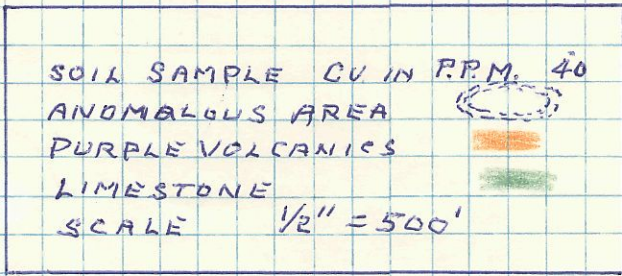 SOIL SAMPLE CU IN P.P.M. 40
ANOMALOUS AREA
PURPLE VOLCANICS
LIMESTONE
SCALE 1/2" = 500'